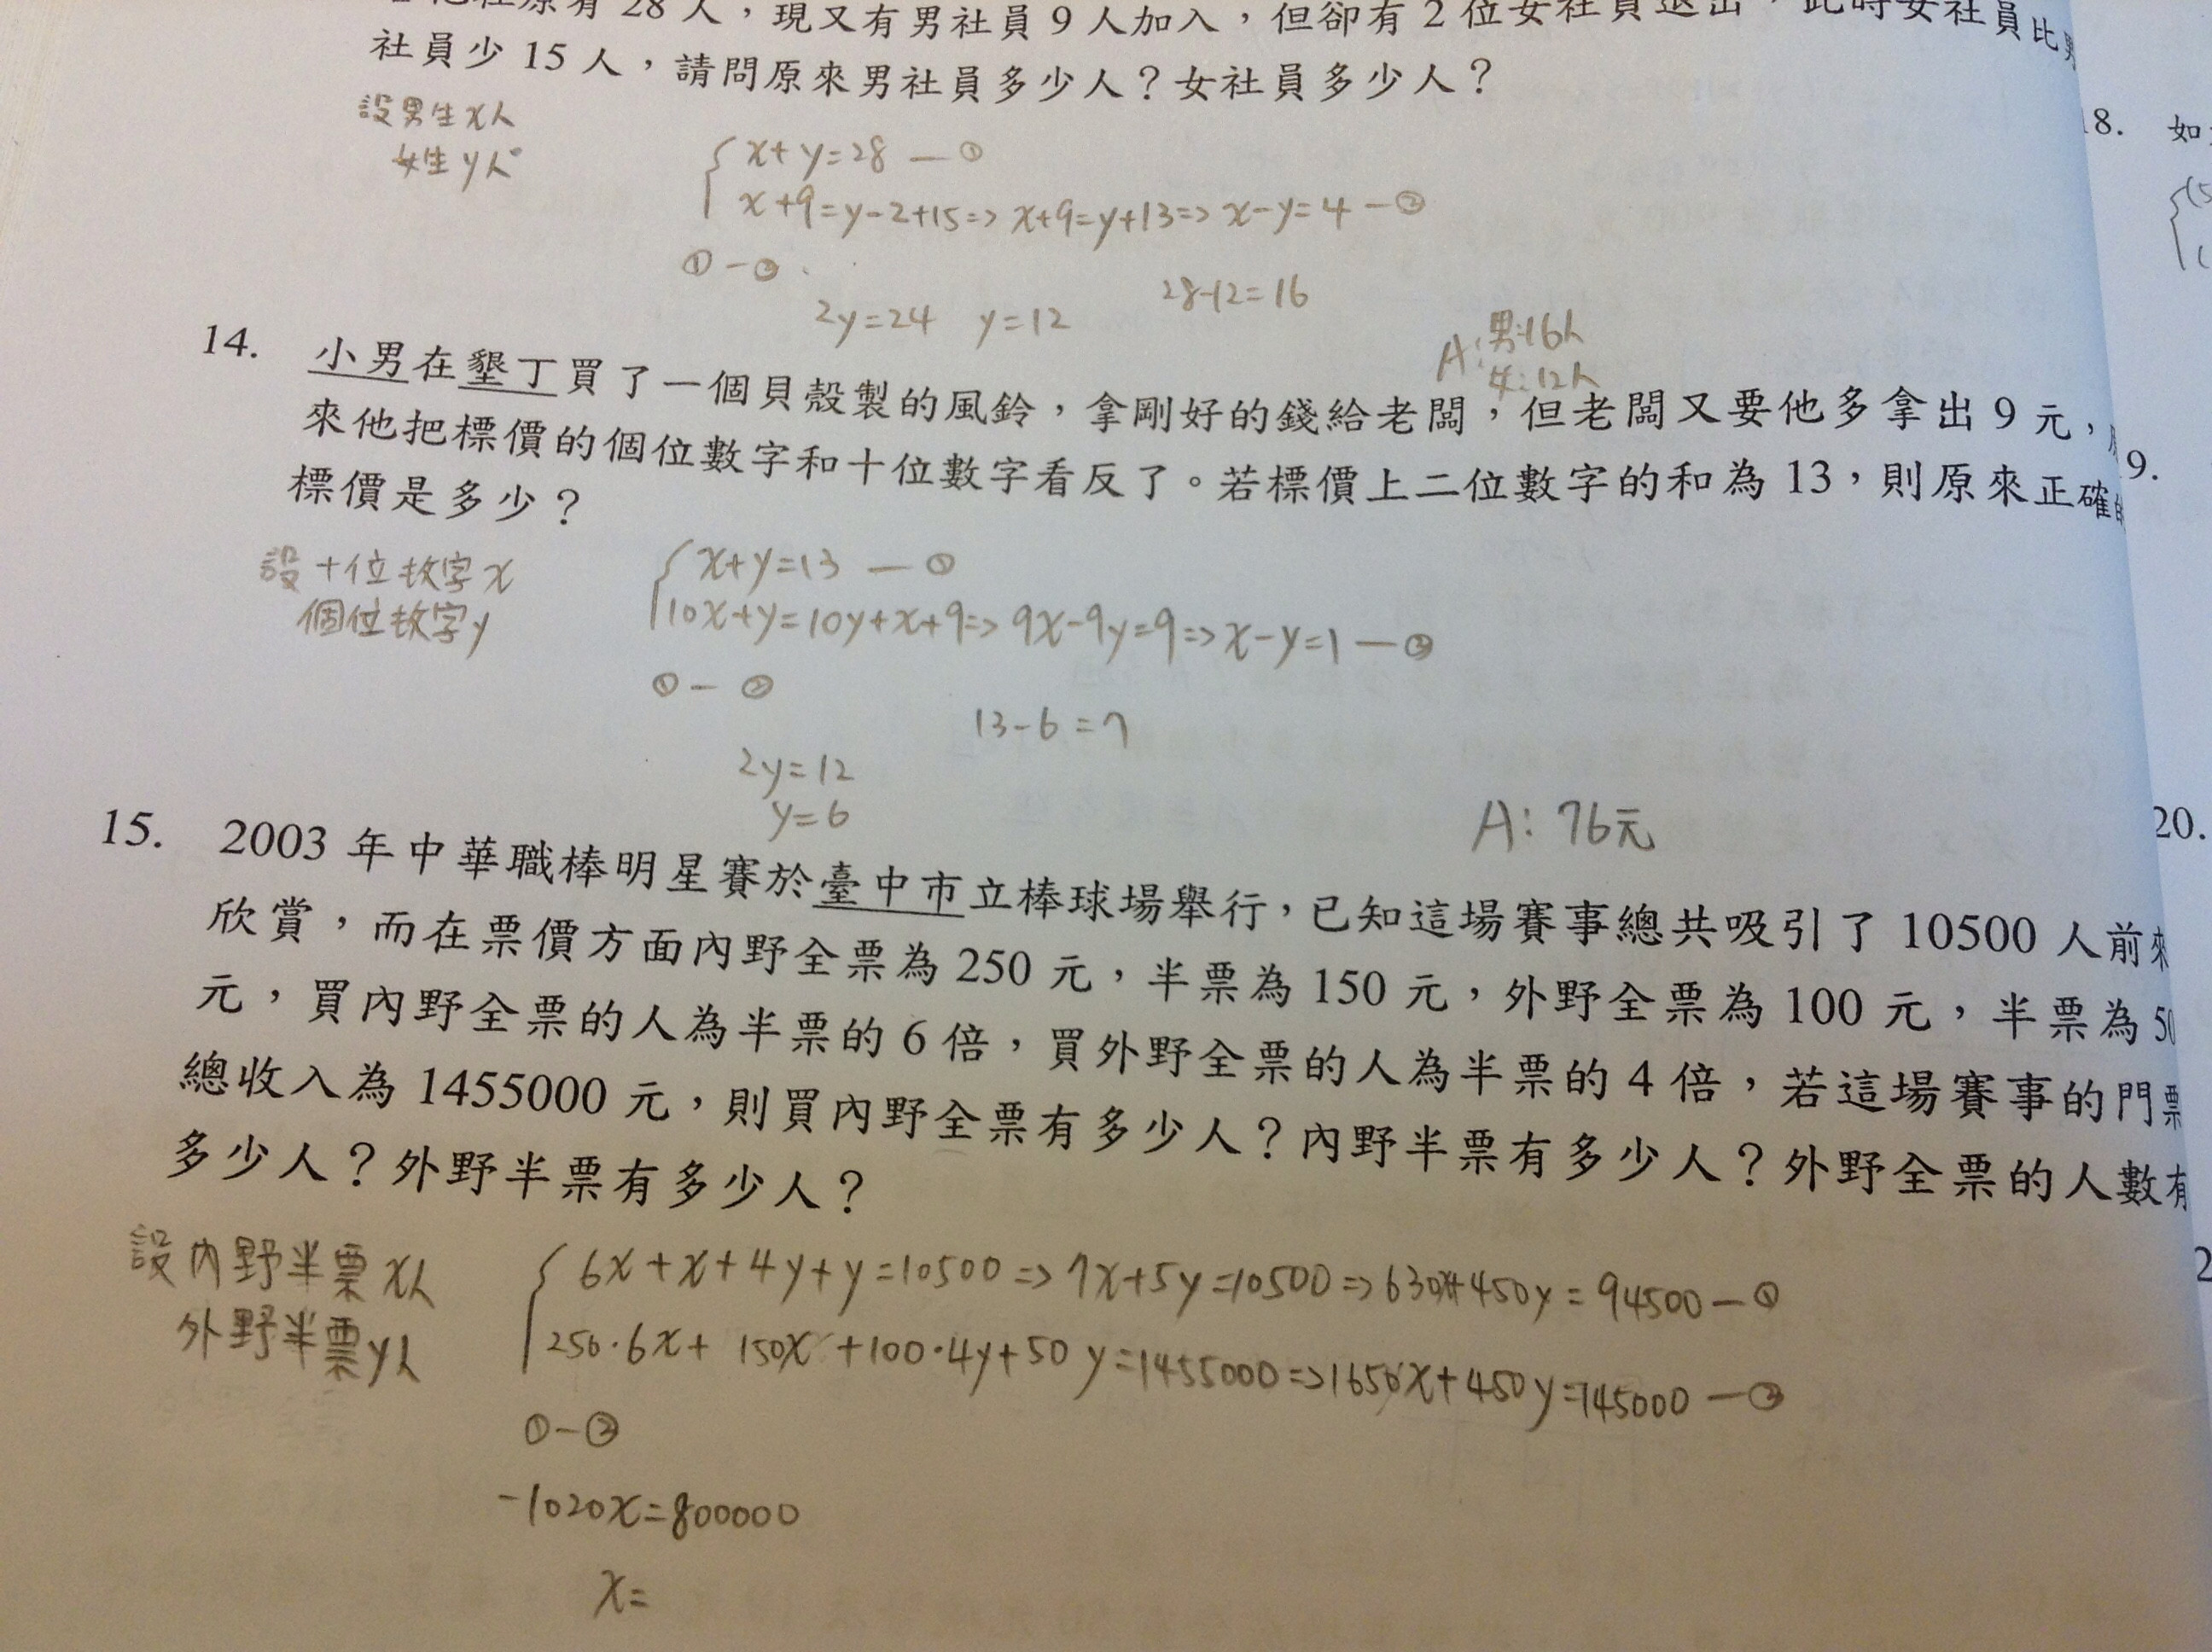 28 人，現又有男社員 9 人加入，但卻有 2 位女社員退出，此時女社員比男
社員少 15 人，請問原來男社員多少人？女社員多少人？
設男生x人
女生y人
x+y=28 —①
x+9=y-2+15=>x+9=y+13=>x-y=4 —②
①-②
2y=24 y=12
28-12=16
A:男:16人
女:12人
14. 小男在墾丁買了一個貝殼製的風鈴，拿剛好的錢給老闆，但老闆又要他多拿出 9 元，
來他把標價的個位數字和十位數字看反了。若標價上二位數字的和為 13，則原來正確的
標價是多少？
設十位数字x
個位数字y
x+y=13 —①
10x+y=10y+x+9=>9x-9y=9=>x-y=1 —②
①-②
13-6=7
2y=12
y=6
A: 76元
15. 2003 年中華職棒明星賽於臺中市立棒球場舉行，已知這場賽事總共吸引了 10500 人前來
欣賞，而在票價方面內野全票為 250 元，半票為 150 元，外野全票為 100 元，半票為 50
元，買內野全票的人為半票的 6 倍，買外野全票的人為半票的 4 倍，若這場賽事的門票
總收入為 1455000 元，則買內野全票有多少人？內野半票有多少人？外野全票的人數有
多少人？外野半票有多少人？
設內野半票x人
外野半票y人
6x+x+4y+y=10500=>7x+5y=10500=>630x+450y=94500—①
250·6x+150x+100·4y+50y=1455000=>1650x+450y=745000—②
①-②
-1020x=800000
x=
18. 如
(5
(
19.
20.
2